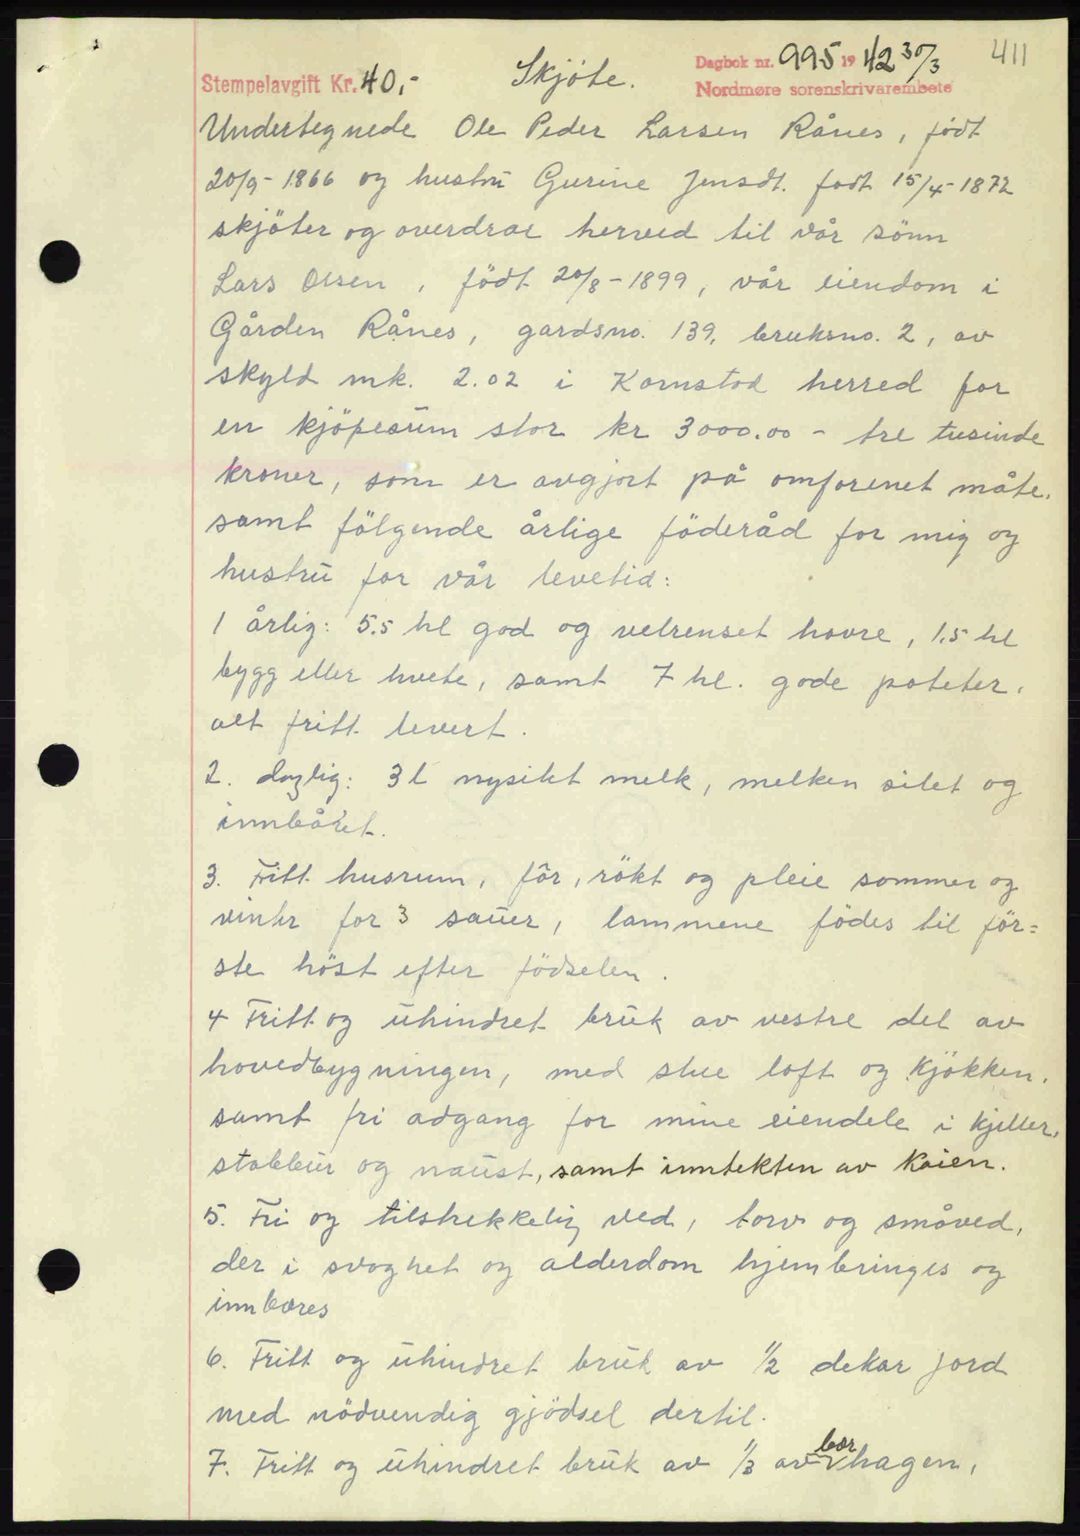 411
Stempelavgift Kr. 40,- Skjöte. Dagbok nr. 995 19 42 30/3
Nordmøre sorenskrivarembete
Undertegnede Ole Peder Larsen Rånes, født
20/9-1866 og hustrü Gurine Jensdt. født 15/4-1872
skjöter og overdrar herved til vår sönn
Lars Olsen, født 20/8-1899, vår eiendom i
Gården Rånes, gardsno. 139, bruksno. 2, av
skyld mk. 2.02 i Kornstad herred for
en kjöpesüm stor kr 3000.00 - tre tusinde
kroner, som er avgjort på omforenet måte,
samt fölgende årlige föderåd for mig og
hustrü for vår levetid:
1 årlig: 5.5 hl god og velrenset havre, 1.5 hl
bygg eller hvete, samt 7 hl. gode poteter,
alt fritt levert.
2. daglig: 3 l nysilt melk, melken silet og
innbåret.
3. Fritt husrum, fôr, rökt og pleie sommer og
vinter for 3 saüer, lammene födes til för=
ste höst efter födselen.
4 Fritt og ühindret brük av vestre del av
hovedbygningen, med stue loft og kjökken,
samt fri adgang for mine eiendele i kjeller,
stabbür og naüst, samt inntekten av kaien.
5. Fri og tilstrekkelig ved, torv og småved,
der i svaghet og alderdom hjembringes og
innbæres
6. Fritt og ühindret brük av 1/2 dekar jord
med nödvendig gjödsel dertil.
7. Fritt og ühindret brük av 1/3 av bærhagen,